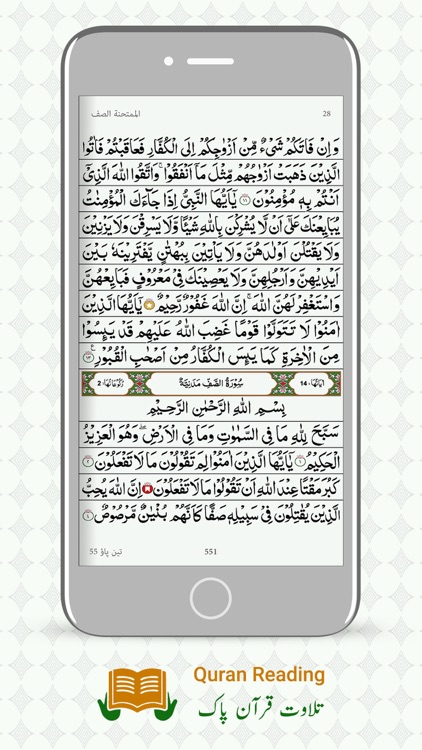 الممتحنة الصف 28
وَاِنْ فَاتَكُمْ شَیْءٌ مِّنْ اَزْوَاجِكُمْ اِلَی الْكُفَّارِ فَعَاقَبْتُمْ فَاٰتُوا
الَّذِیْنَ ذَهَبَتْ اَزْوَاجُهُمْ مِّثْلَ مَاۤ اَنْفَقُوْا ؕ وَاتَّقُوا اللّٰهَ الَّذِیْۤ
اَنْتُمْ بِهٖ مُؤْمِنُوْنَ ﴿۱۱﴾ یٰۤاَیُّهَا النَّبِیُّ اِذَا جَآءَكَ الْمُؤْمِنٰتُ
یُبَایِعْنَكَ عَلٰۤی اَنْ لَّا یُشْرِكْنَ بِاللّٰهِ شَیْـًٔا وَّلَا یَسْرِقْنَ وَلَا یَزْنِیْنَ
وَلَا یَقْتُلْنَ اَوْلَادَهُنَّ وَلَا یَاْتِیْنَ بِبُهْتَانٍ یَّفْتَرِیْنَهٗ بَیْنَ
اَیْدِیْهِنَّ وَاَرْجُلِهِنَّ وَلَا یَعْصِیْنَكَ فِیْ مَعْرُوْفٍ فَبَایِعْهُنَّ
وَاسْتَغْفِرْ لَهُنَّ اللّٰهَ ؕ اِنَّ اللّٰهَ غَفُوْرٌ رَّحِیْمٌ یٰۤاَیُّهَا الَّذِیْنَ
اٰمَنُوْا لَا تَتَوَلَّوْا قَوْمًا غَضِبَ اللّٰهُ عَلَیْهِمْ قَدْ یَىِٕسُوْا
مِنَ الْاٰخِرَةِ كَمَا یَىِٕسَ الْكُفَّارُ مِنْ اَصْحٰبِ الْقُبُوْرِ ﴿۱۳﴾
اٰیَاتُهَا: 14 سُوْرَةُ الصَّفِّ مَدَنِیَّةٌ رُكُوْعَاتُهَا: 2
بِسْمِ اللّٰهِ الرَّحْمٰنِ الرَّحِیْمِ
سَبَّحَ لِلّٰهِ مَا فِی السَّمٰوٰتِ وَمَا فِی الْاَرْضِ ۚ وَهُوَ الْعَزِیْزُ
الْحَكِیْمُ ﴿۱﴾ یٰۤاَیُّهَا الَّذِیْنَ اٰمَنُوْا لِمَ تَقُوْلُوْنَ مَا لَا تَفْعَلُوْنَ ﴿۲﴾
كَبُرَ مَقْتًا عِنْدَ اللّٰهِ اَنْ تَقُوْلُوْا مَا لَا تَفْعَلُوْنَ اِنَّ اللّٰهَ یُحِبُّ
الَّذِیْنَ یُقَاتِلُوْنَ فِیْ سَبِیْلِهٖ صَفًّا كَاَنَّهُمْ بُنْیَانٌ مَّرْصُوْصٌ ﴿۴﴾
تین پاؤ 55 551
Quran Reading
تلاوت قرآن پاک